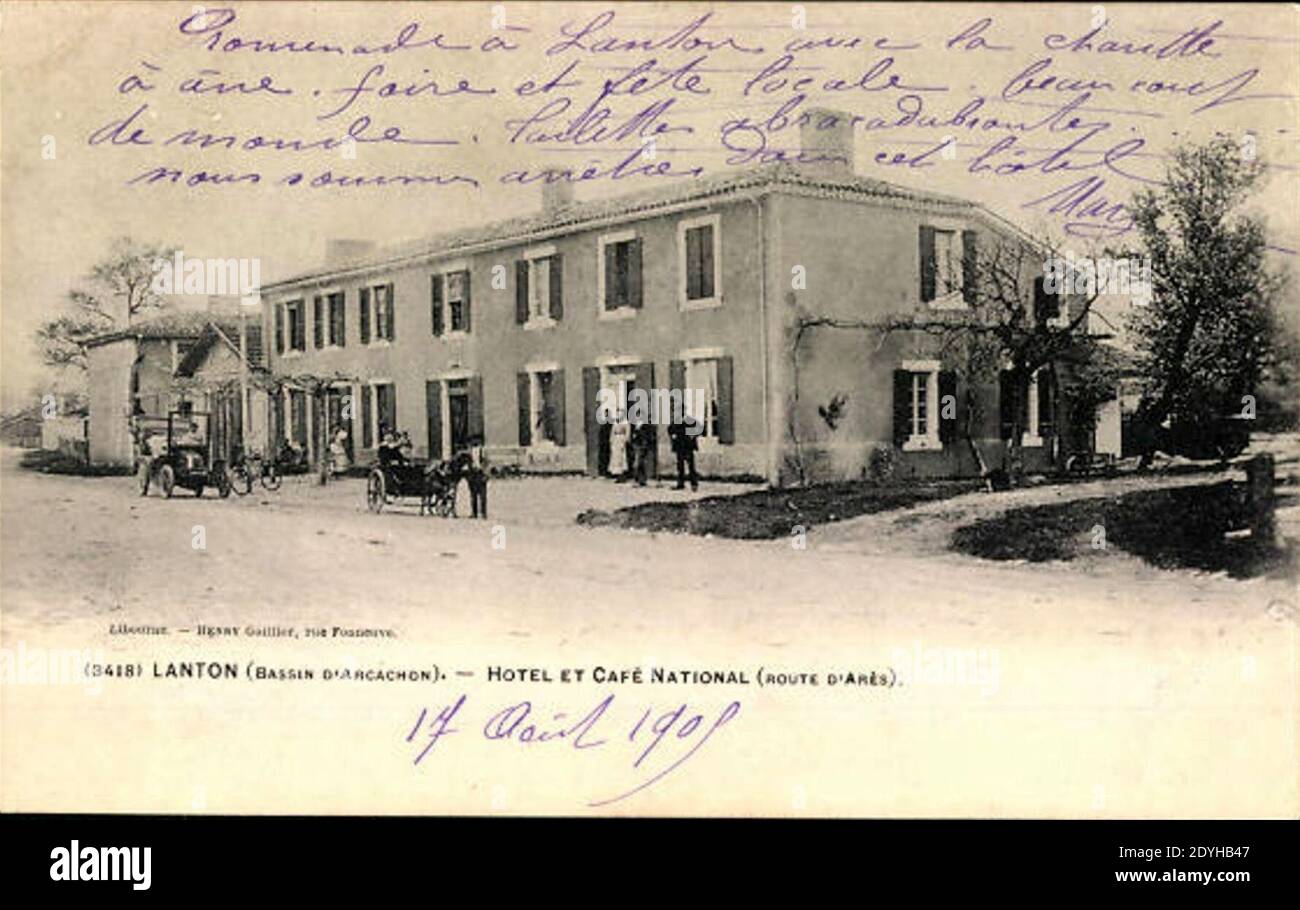 Promenade à Lanton avec la charette
à âne. foire et fête locale. beaucoup
de monde. toilettes abracadabrantes.
nous sommes arrêtés dans cet hôtel
Libourne. — HENRY Guillier, rue Fonneuve.
(3418) LANTON (BASSIN D'ARCACHON). — HOTEL ET CAFÉ NATIONAL (ROUTE D'ARÈS).
17 Août 1905
alamy
Image ID: 2DYHB47
www.alamy.com